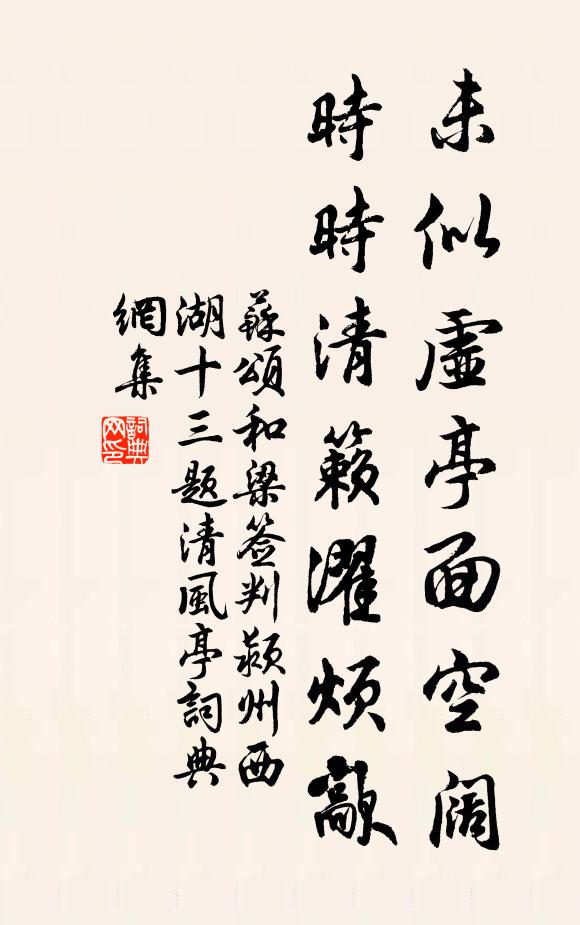 未似虛亭面空闊
時時清籟濯煩歊
蘇頌和梁签判颍州西
湖十三题清風亭詞典
網集
詞典
网印